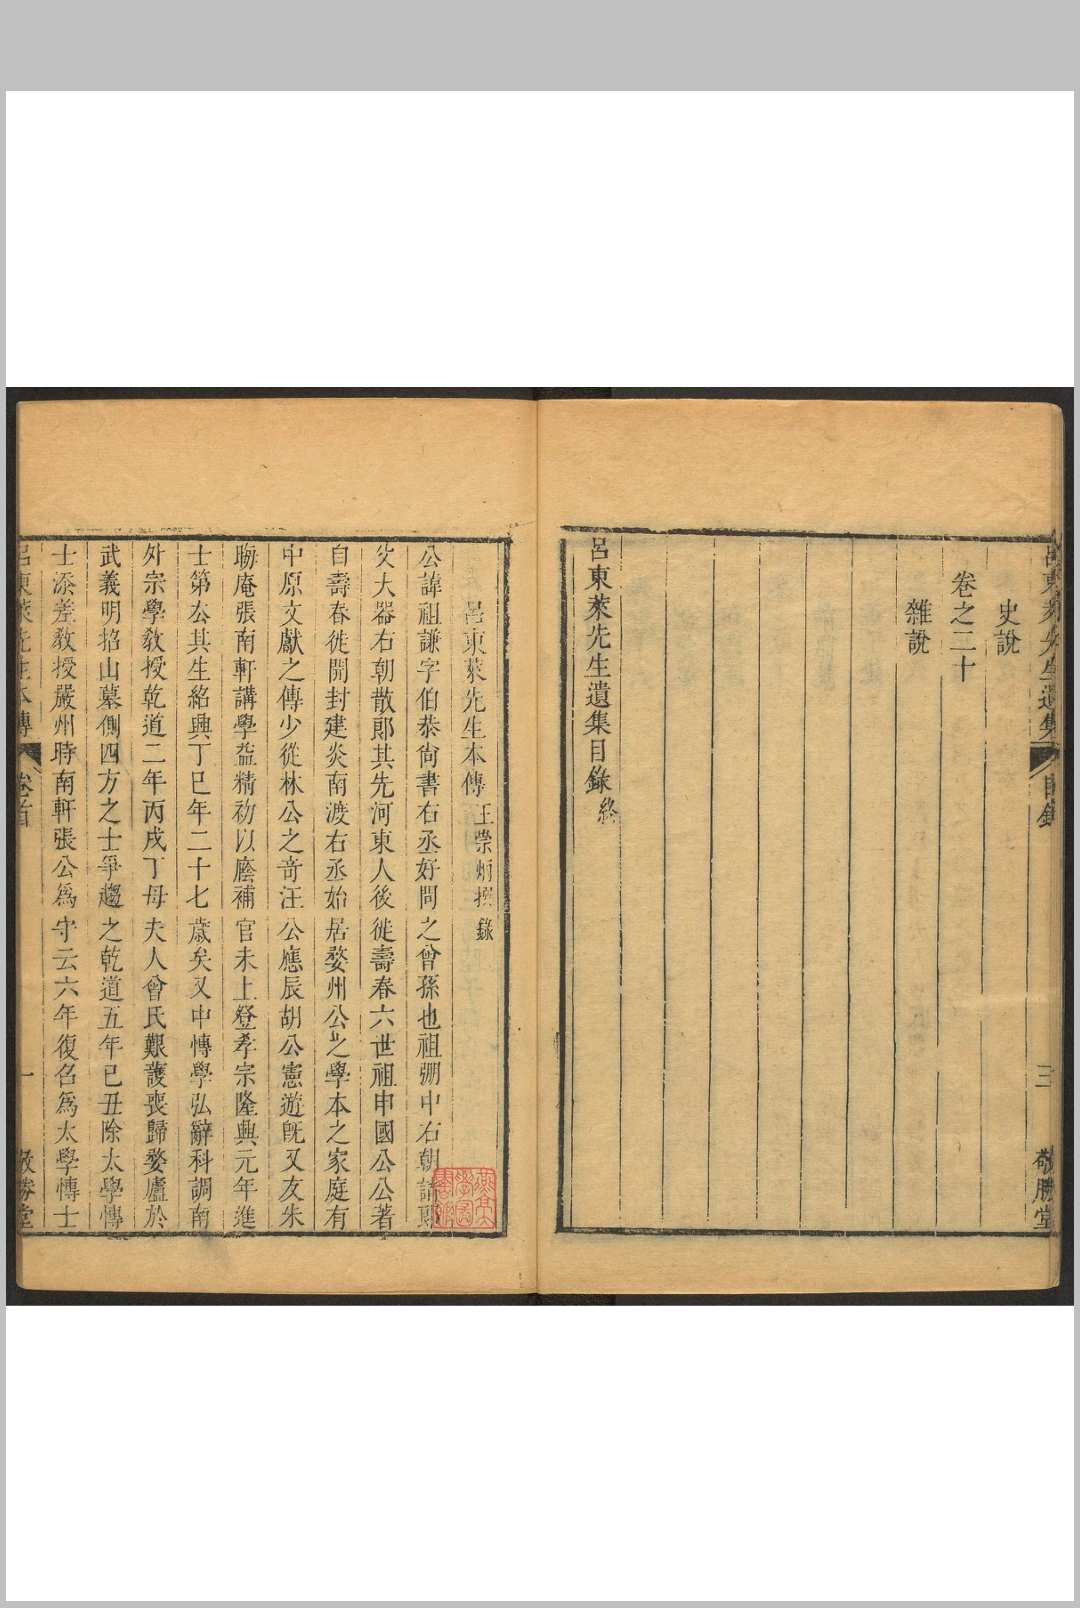 呂東萊先生遺集 目錄 三 敬勝堂
史說
卷之二十
雜說
呂東萊先生遺集目錄終
呂東萊先生本傳 王崇炳撰錄
公諱祖謙字伯恭尚書右丞好問之曾孫也祖弸中右朝請郎
父大器右朝散郎其先河東人後徙壽春六世祖申國公公著
自壽春徙開封建炎南渡右丞始居婺州公之學本之家庭有
中原文獻之傳少從林公之竒汪公應辰胡公憲遊旣又友朱
晦庵張南軒講學益精初以廕補官未上登孝宗隆興元年進
士第公其生紹興丁巳年二十七歲矣又中愽學弘辭科調南
外宗學敎授乾道二年丙戌丁母夫人曾氏艱護喪歸婺廬於
武義明招山墓側四方之士爭趨之乾道五年己丑除太學愽
士添差敎授嚴州時南軒張公為守云六年復召為太學愽士
呂東萊先生本傳 卷首 一 敬勝堂